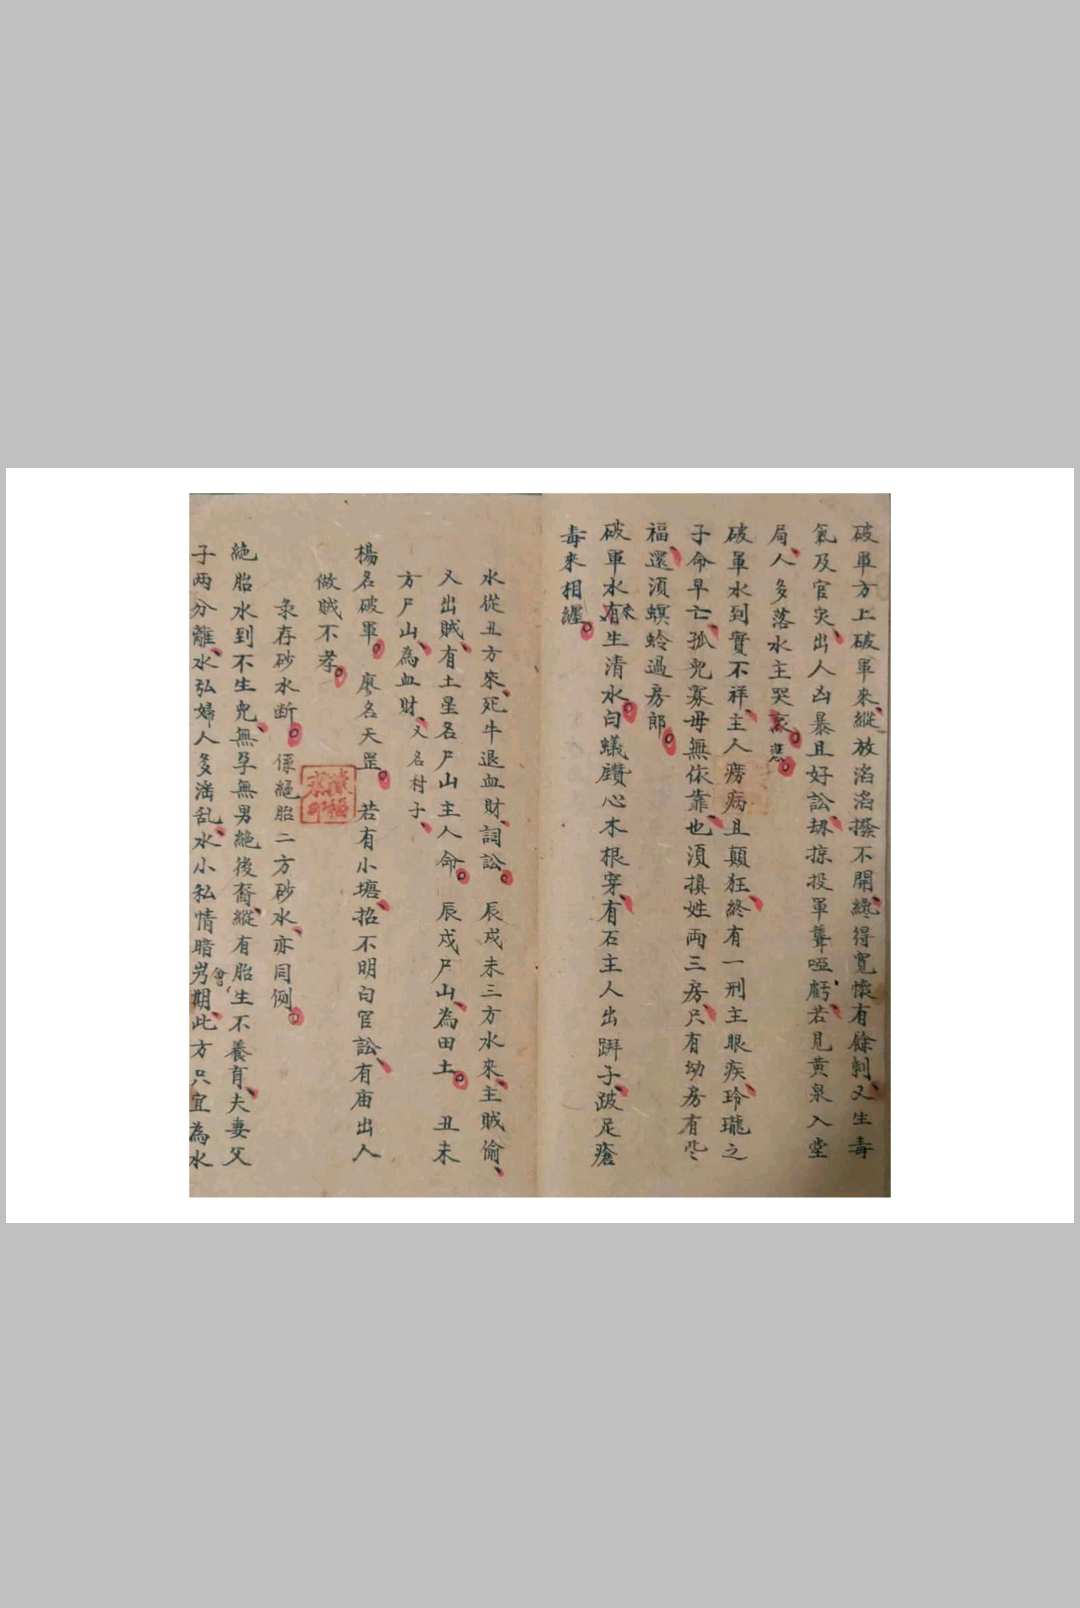 破軍方上破軍來縱放滔滔撥不開縱得寬懷有餘剩又生毒
氣及官灾出人凶暴且好訟刼掠投軍聾啞虧若見黃泉入堂
局人多落水主哭哀悲
破軍水到實不祥主人癆病且顛狂終有一刑主眼疾玲瓏之
子命早亡孤兒寡母無依靠也須換姓両三房尺有㓜房有些
福還須螟蛉過房郎
破軍水來生清水白蟻鑽心木根穿有石主人出跰子跛足瘡
毒來相纏
水從丑方來死牛退血財詞訟 辰戍未三方水來主賊偷
又出賊有土星名尸山主人命 辰戍尸山為田土 丑未
方尸山為血財又名村子
楊名破軍 廖名天罡 若有小塘招不明白官訟有庙出人
做賊不孝
彔存砂水断 係絕胎二方砂水亦同例
絕胎水到不生兒無孕無男絕後裔縱有胎生不養育夫妻父
子両分離水弘婦人多滛乱水小私情暗會期此方只宜為水